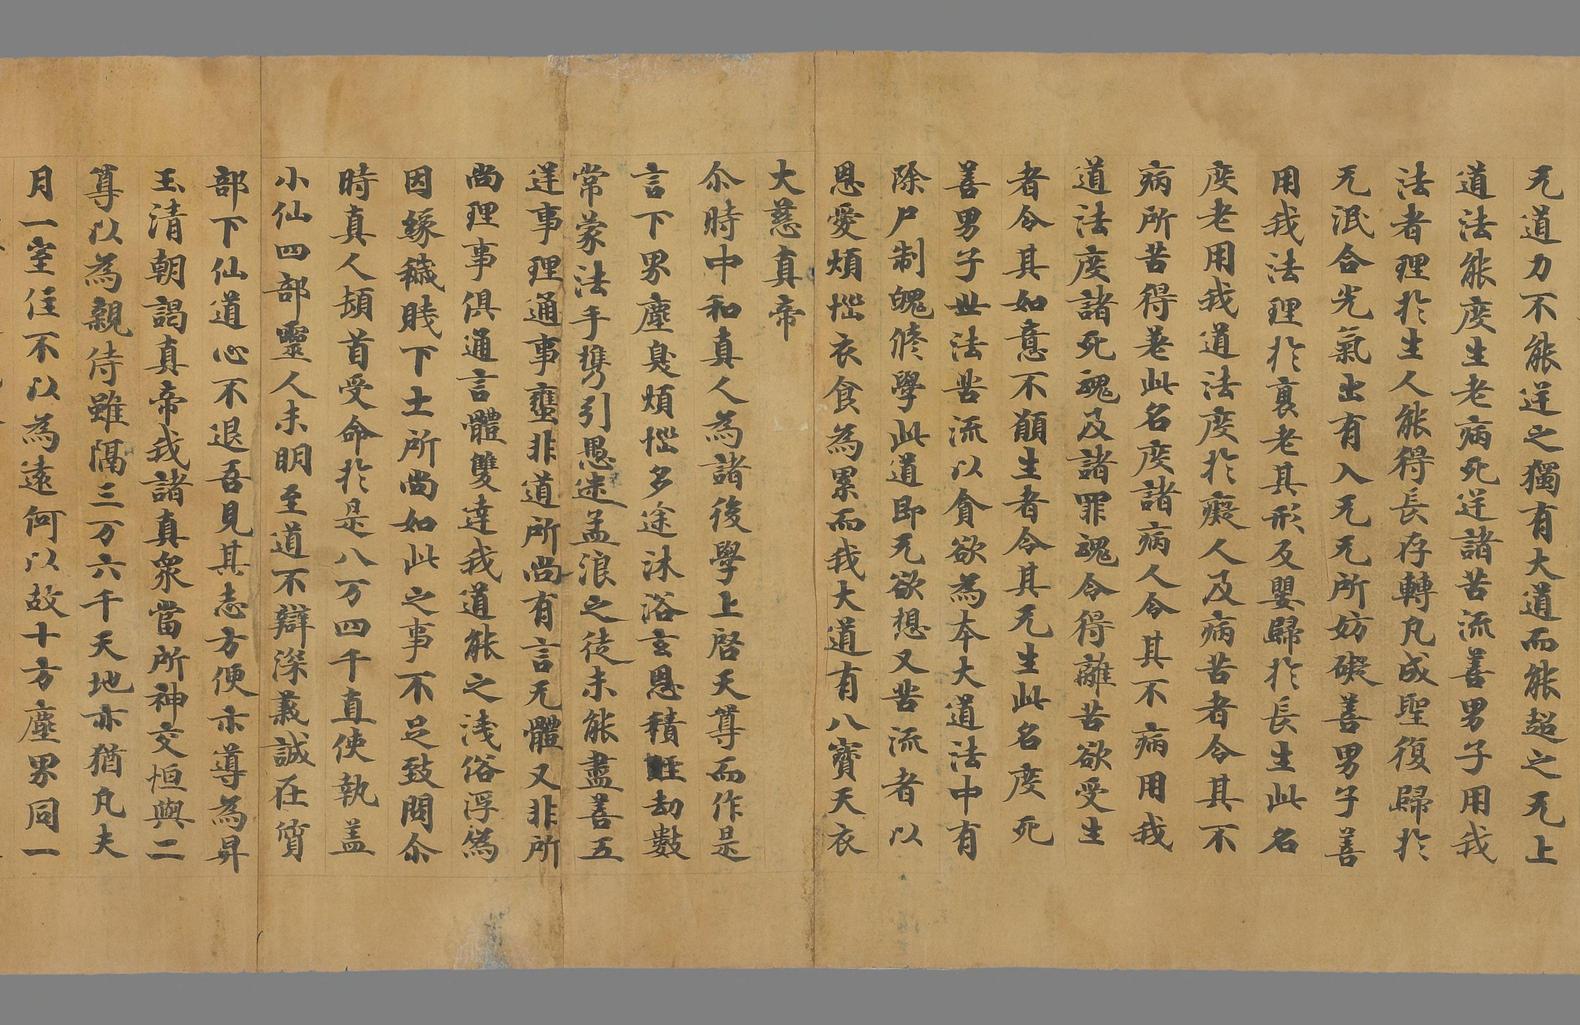 无道力不能迋之獨有大道而能超之无上
道法能度生老病死迋諸苦流善男子用我
法者理於生人能得長存轉凡成聖復歸於
无泯合光氣出有入无无所妨礙善男子善
用我法理於衰老其形反嬰歸於長生此名
度老用我道法度於癡人及病苦者令其不
病所苦得差此名度諸病人令其不病用我
道法度諸死魂及諸罪魂令得離苦欲受生
者令其如意不願生者令其无生此名度死
善男子世法苦流以貪欲為本大道法中有
除尸制魄脩學此道即无欲想又苦流者以
恩愛煩惱衣食為累而我大道有八寶天衣
大慈真帝
尒時中和真人為諸後學上啓天尊而作是
言下界塵臭煩惱多途沐浴玄恩積劫數
常蒙法手携引愚迷孟浪之徒未能盡善五
迋事理通事壅非道所尚有言无體又非所
尚理事俱通言體雙達我道能之淺俗浮偽
因緣穢賤下土所尚如此之事不足致問尒
時真人頓首受命於是八万四千直使執盖
小仙四部靈人未明至道不辯深義誠在質
部下仙道心不退吾見其志方便亦導為昇
玉清朝謁真帝我諸真衆當所神交恒與二
尊以為親侍雖隔三万六千天地亦猶凡夫
月一室住不以為遠何以故十方塵界同一